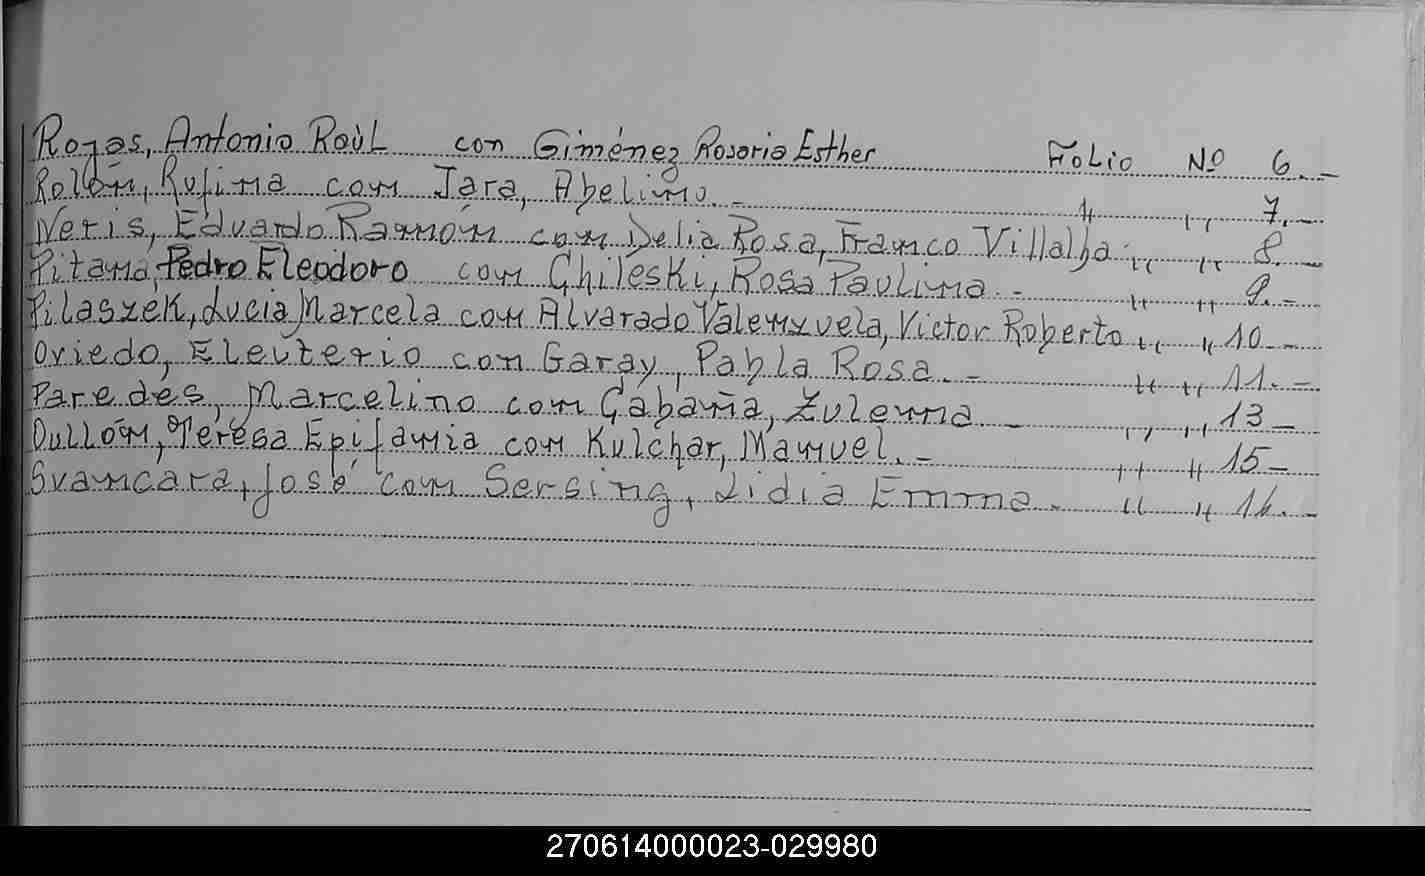 Rojas, Antonio Raúl con Giménez Rosario Esther Folio Nº 6.-
Rolón, Rufina con Jara, Abelino.- " " 7.-
Neris, Eduardo Ramón con Delia Rosa, Franco Villalba. " " 8.-
Pitana, Pedro Eleodoro con Chileski, Rosa Paulina.- " " 9.-
Pilaszek, Lucia Marcela con Alvarado Valenzuela, Victor Roberto " " 10.-
Oviedo, Eleuterio con Garay, Pabla Rosa.- " " 11.-
Paredes, Marcelino con Cabaña, Zulema - " " 13-
Dullón, Teresa Epifania con Kulchar, Manuel.- " " 15-
Svancara, José con Sersing, Lidia Emma.- " "
270614000023-029980